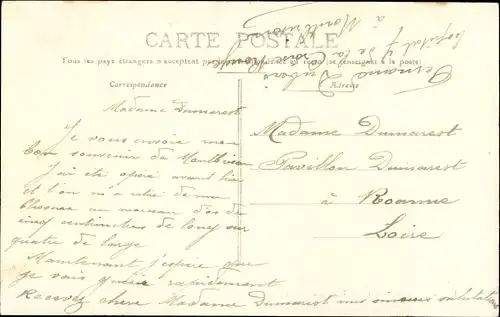 Fernand Dubois
Hôpital 7 de la Croix Rouge
à Montbrison
CARTE POSTALE
Tous les pays étrangers n'acceptent pas la correspondance au recto, se renseigner à la poste
Correspondance
Adresse
Madame Dumarest
Je vous envoie mon
bon souvenir de Montbrison
J'ai été opéré avant hier
et l'on m'a retiré de ma
blessure un morceau d'os de
cinq centimètres de long sur
quatre de large
Maintenant j'espère que
je vais guérir rapidement
Recevez chère Madame Dumarest mes sincères salutations
Madame Dumarest
Pavillon Dumarest
à Roanne
Loire